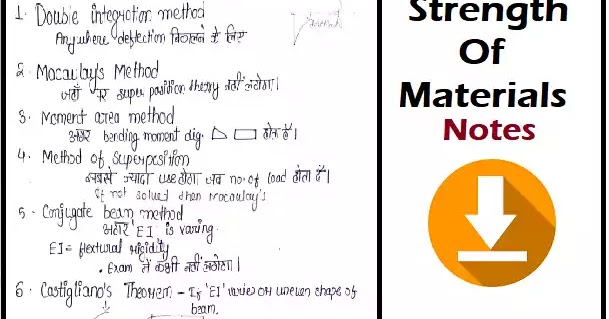 1. Double integration method
Anywhere deflection निकालने के लिए
2. Macaulay's Method
जहाँ पर super position theory नहीं लगेगा।
3. Moment area method
अगर bending moment dig. होता है।
4. Method of Superposition
सबसे ज्यादा use होगा जब no. of load होता है।
If not solved then macaulay's
5- Conjugate beam method
अगर 'EI' is varing
EI = flextural rigidity
• Exam में कभी नहीं लगेगा।
6. Castigliano's Theorem - If 'EI' varies or uneven shape of
beam.
Strength
Of
Materials
Notes